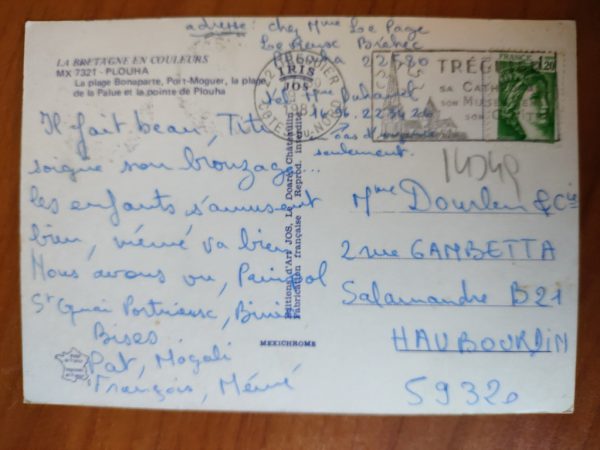 adresse: chez Mme Le Page
Le Pieux Bréhec
Plouha 22580
LA BRETAGNE EN COULEURS
MX 7321 - PLOUHA
La plage Bonaparte, Port-Moguer, la plage
de la Palue et la pointe de Plouha
IRIS
JOS
22 TRÉGUIER
CÔTES DU NORD
TRÉGUIER
SA CATHÉDRALE
SON MUSÉE
SON
FRANCE
1,20
Mme Duhamel
16.96.22
seulement.
Il fait beau, Titi
soigne son bronzage...
les enfants s'amusent
bien, mémé va bien
Nous avons vu, Paimpol
St Quai Portrieux, Binic
Bises..
Pat, Magali
François, Mémé
Editions d'Art JOS, Le Doaré, Châteaulin
Fabrication française Reprod. interdite
MEXICHROME
14949
Mme Dourlen & Cie
2 rue GAMBETTA
Salamandre B21
HAUBOURDIN
59320